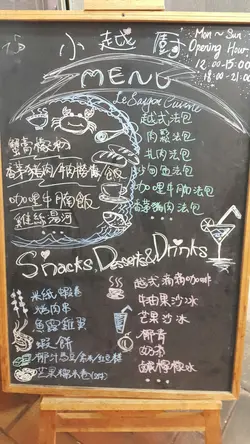 小越廚
Mon ~ Sun
Opening Hour
12:00-15:00
18:00-21:00
MENU
Le Saigon Cuisine
越式法包
肉鬆法包
扎肉法包
沙甸魚法包
咖喱牛腩法包
香茅豬肉法包
蟹膏檬粉
飯
咖喱牛腩飯
雞絲湯河
Snacks, Desserts & Drinks
米紙蝦卷
燒肉串
魚露雞翼
蝦餅
芒果糯米卷
越式滴滴咖啡
牛油果沙冰
芒果沙冰
椰青
奶茶
鹹檸檬冰